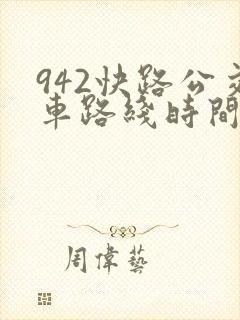 942快路公交
車路綫時間
周偉藝